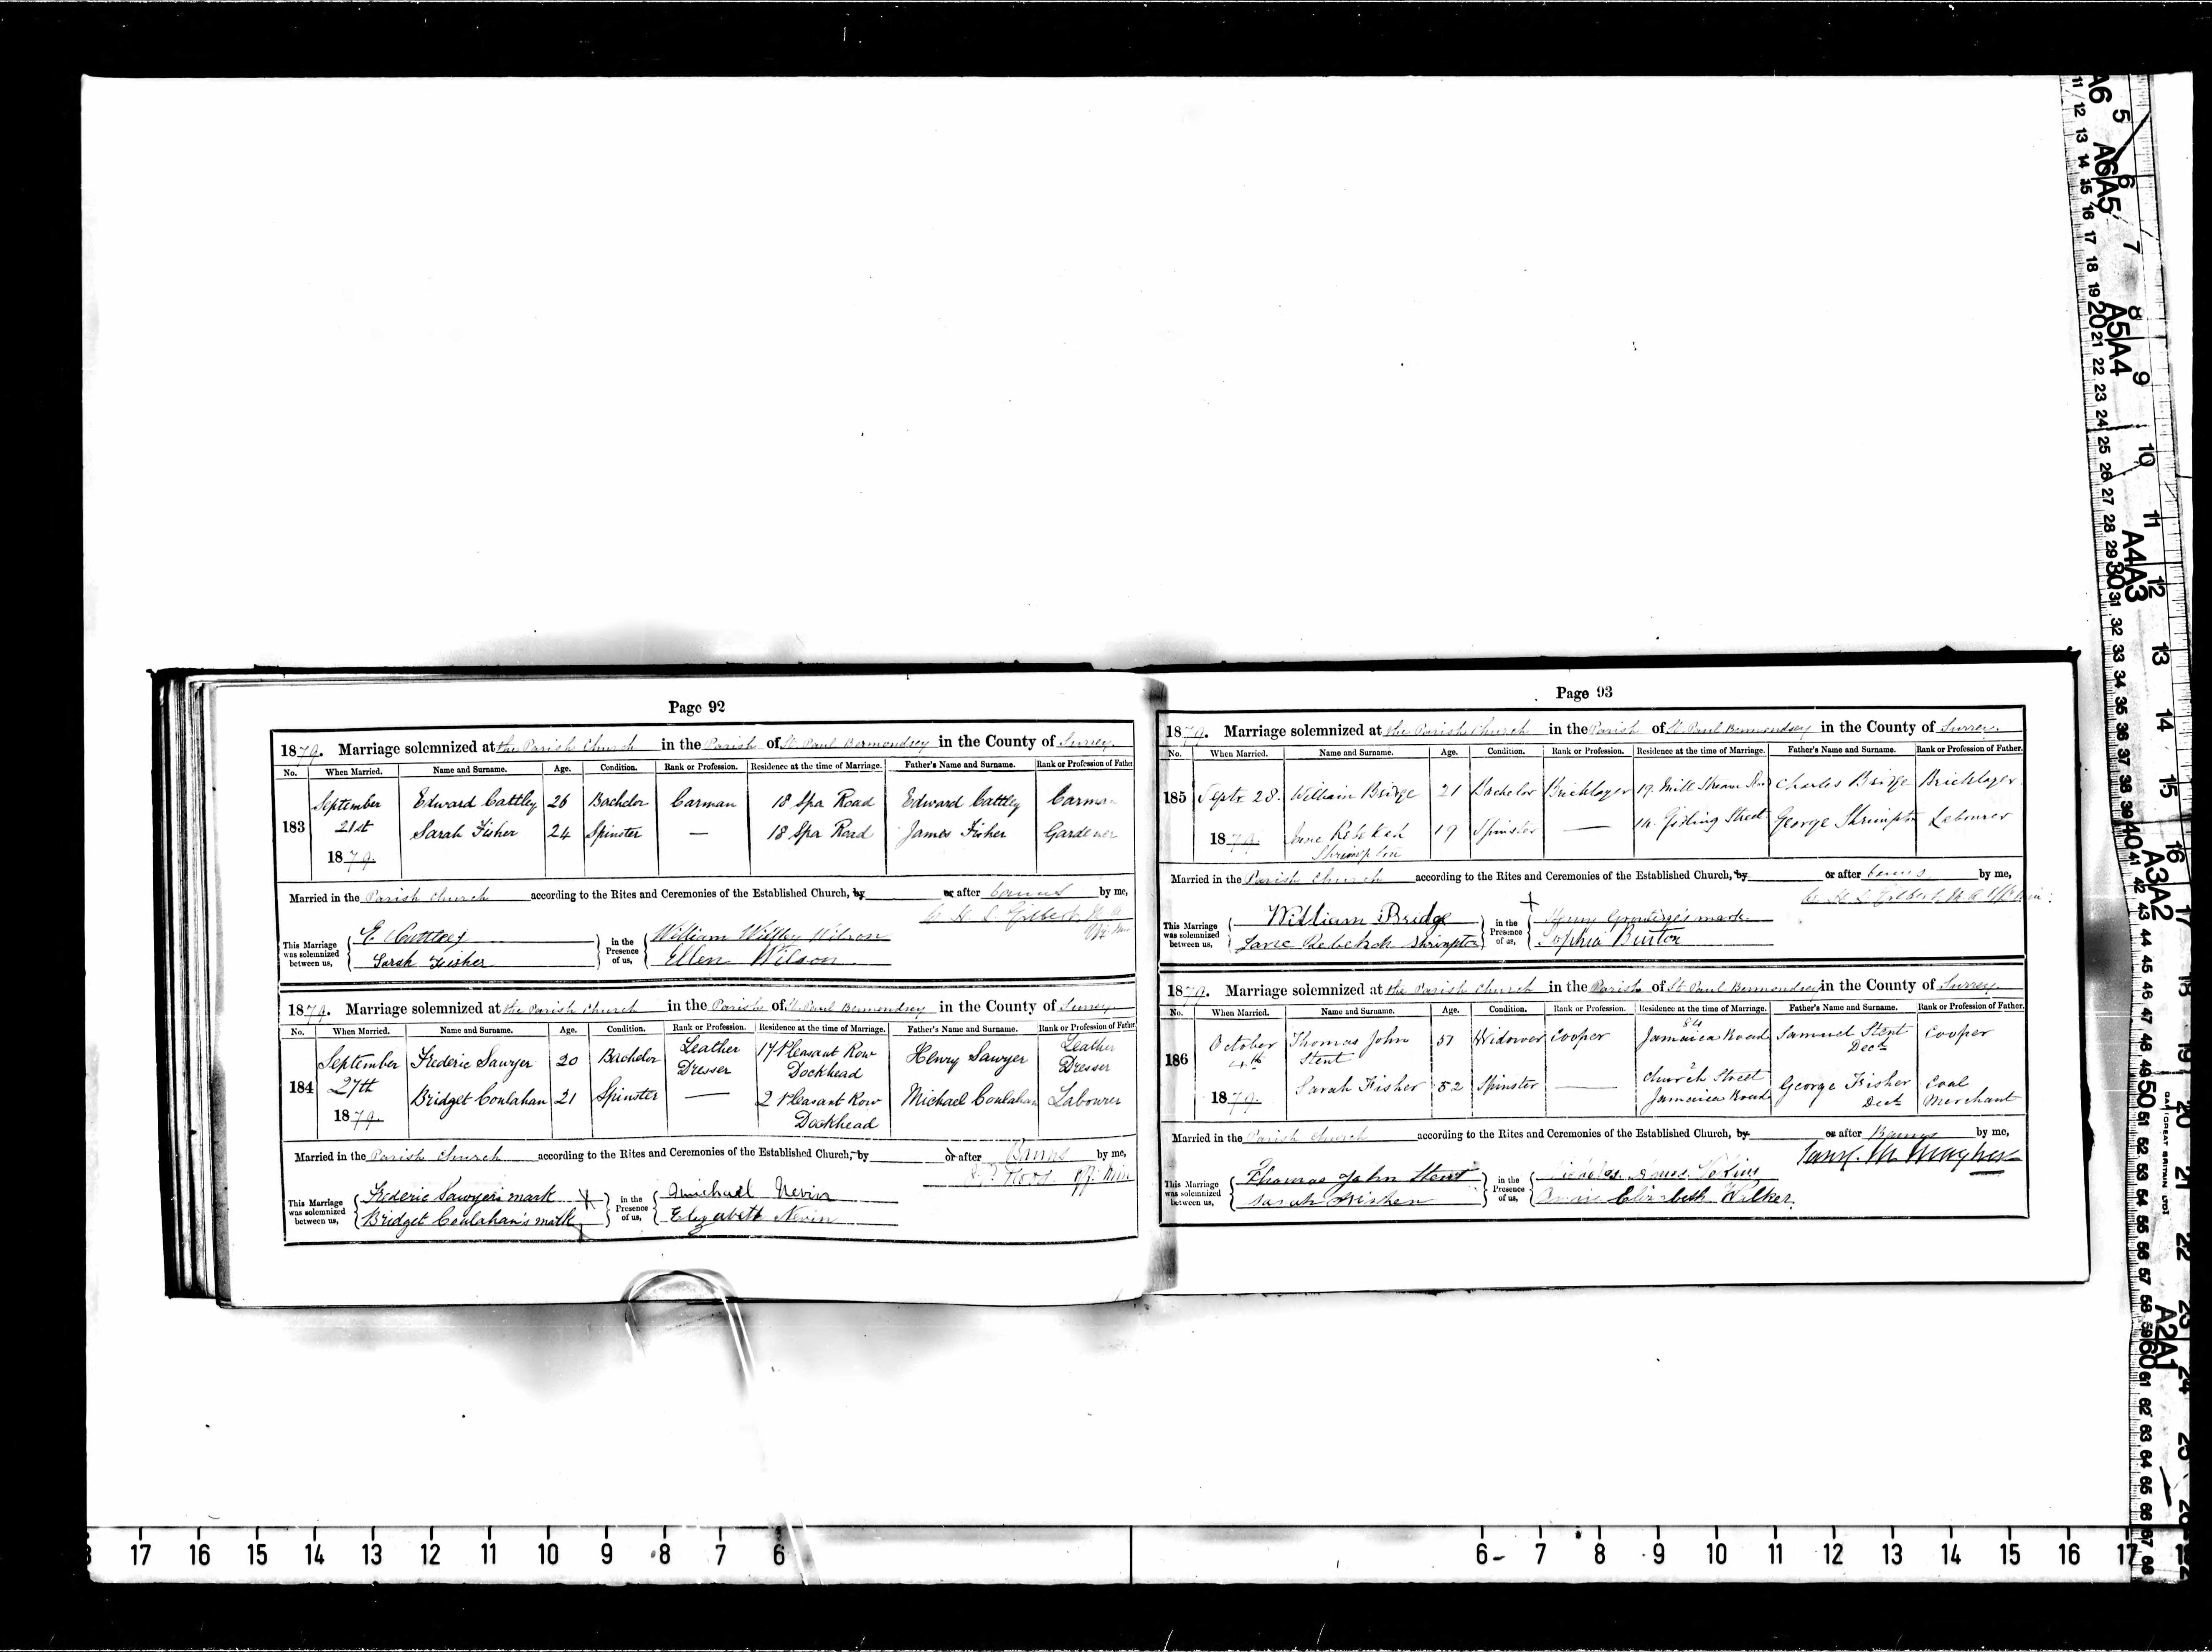 Page 92
1879. Marriage solemnized at the Parish Church in the Parish of St Paul Bermondsey in the County of Surrey.
No. When Married. Name and Surname. Age. Condition. Rank or Profession. Residence at the time of Marriage. Father's Name and Surname. Rank or Profession of Father
September Edward Cattley 26 Bachelor Carman 18 Spa Road Edward Cattley Carman
183 21st Sarah Fisher 24 Spinster — 18 Spa Road James Fisher Gardener
1879.
Married in the Parish Church according to the Rites and Ceremonies of the Established Church, by or after banns by me,
Gilbert
This Marriage was solemnized between us, E Cattley in the Presence of us, William Wilson
Sarah Fisher Ellen Wilson
1879. Marriage solemnized at the Parish Church in the Parish of St Paul Bermondsey in the County of Surrey
No. When Married. Name and Surname. Age. Condition. Rank or Profession. Residence at the time of Marriage. Father's Name and Surname. Rank or Profession of Father
September Frederic Sawyer 20 Bachelor Leather Dresser 17 Pleasant Row Dockhead Henry Sawyer Leather Dresser
184 27th Bridget Coulahan 21 Spinster — 2 Pleasant Row Dockhead Michael Coulahan Labourer
1879.
Married in the Parish Church according to the Rites and Ceremonies of the Established Church, by or after Banns by me,
Off. Min
This Marriage was solemnized between us, Frederic Sawyer's mark X in the Presence of us, Michael Nevin
Bridget Coulahan's mark X Elizabeth Nevin
Page 93
1879. Marriage solemnized at the Parish Church in the Parish of St Paul Bermondsey in the County of Surrey.
No. When Married. Name and Surname. Age. Condition. Rank or Profession. Residence at the time of Marriage. Father's Name and Surname. Rank or Profession of Father.
185 Septr 28. William Bridge 21 Bachelor Bricklayer 19. Mill Stream Charles Bridge Bricklayer
1879. Jane Rebekah Shrimpton 19 Spinster — 14. Street George Shrimpton Labourer
Married in the Parish Church according to the Rites and Ceremonies of the Established Church, by or after banns by me,
Gilbert M.A. Off Min:
This Marriage was solemnized between us, William Bridge in the Presence of us, X Henry mark
Jane Rebekah Shrimpton Sophia Burton
1879. Marriage solemnized at the Parish Church in the Parish of St Paul Bermondsey in the County of Surrey.
No. When Married. Name and Surname. Age. Condition. Rank or Profession. Residence at the time of Marriage. Father's Name and Surname. Rank or Profession of Father.
186 October 4th Thomas John Stent 57 Widower Cooper 84 Jamaica Road Samuel Stent Decd Cooper
1879. Sarah Fisher 52 Spinster — Church Street Jamaica Road George Fisher Decd Coal Merchant
Married in the Parish Church according to the Rites and Ceremonies of the Established Church, by or after Banns by me,
This Marriage was solemnized between us, Thomas John Stent in the Presence of us,
Sarah Fisher Annie Elizabeth Walker.
17 16 15 14 13 12 11 10 9 8 7 6 6 7 8 9 10 11 12 13 14 15 16 17